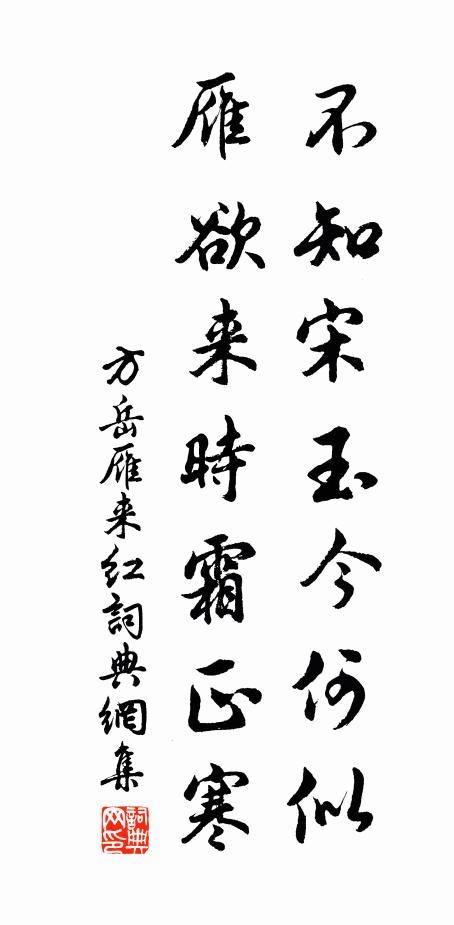 不知宋玉今何似
雁欲来時霜正寒
方岳雁来红詞典網集
詞典網印